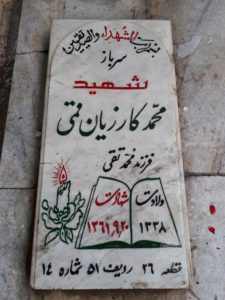 سرباز
شهید
محمد کارزیان فمی
فرزند محمد تقی
ولادت شهادت
۱۳۳۸ ۱۳۶۱,۹,۲۰
قطعه ۲۶ ردیف ۵۱ شماره ۱۴